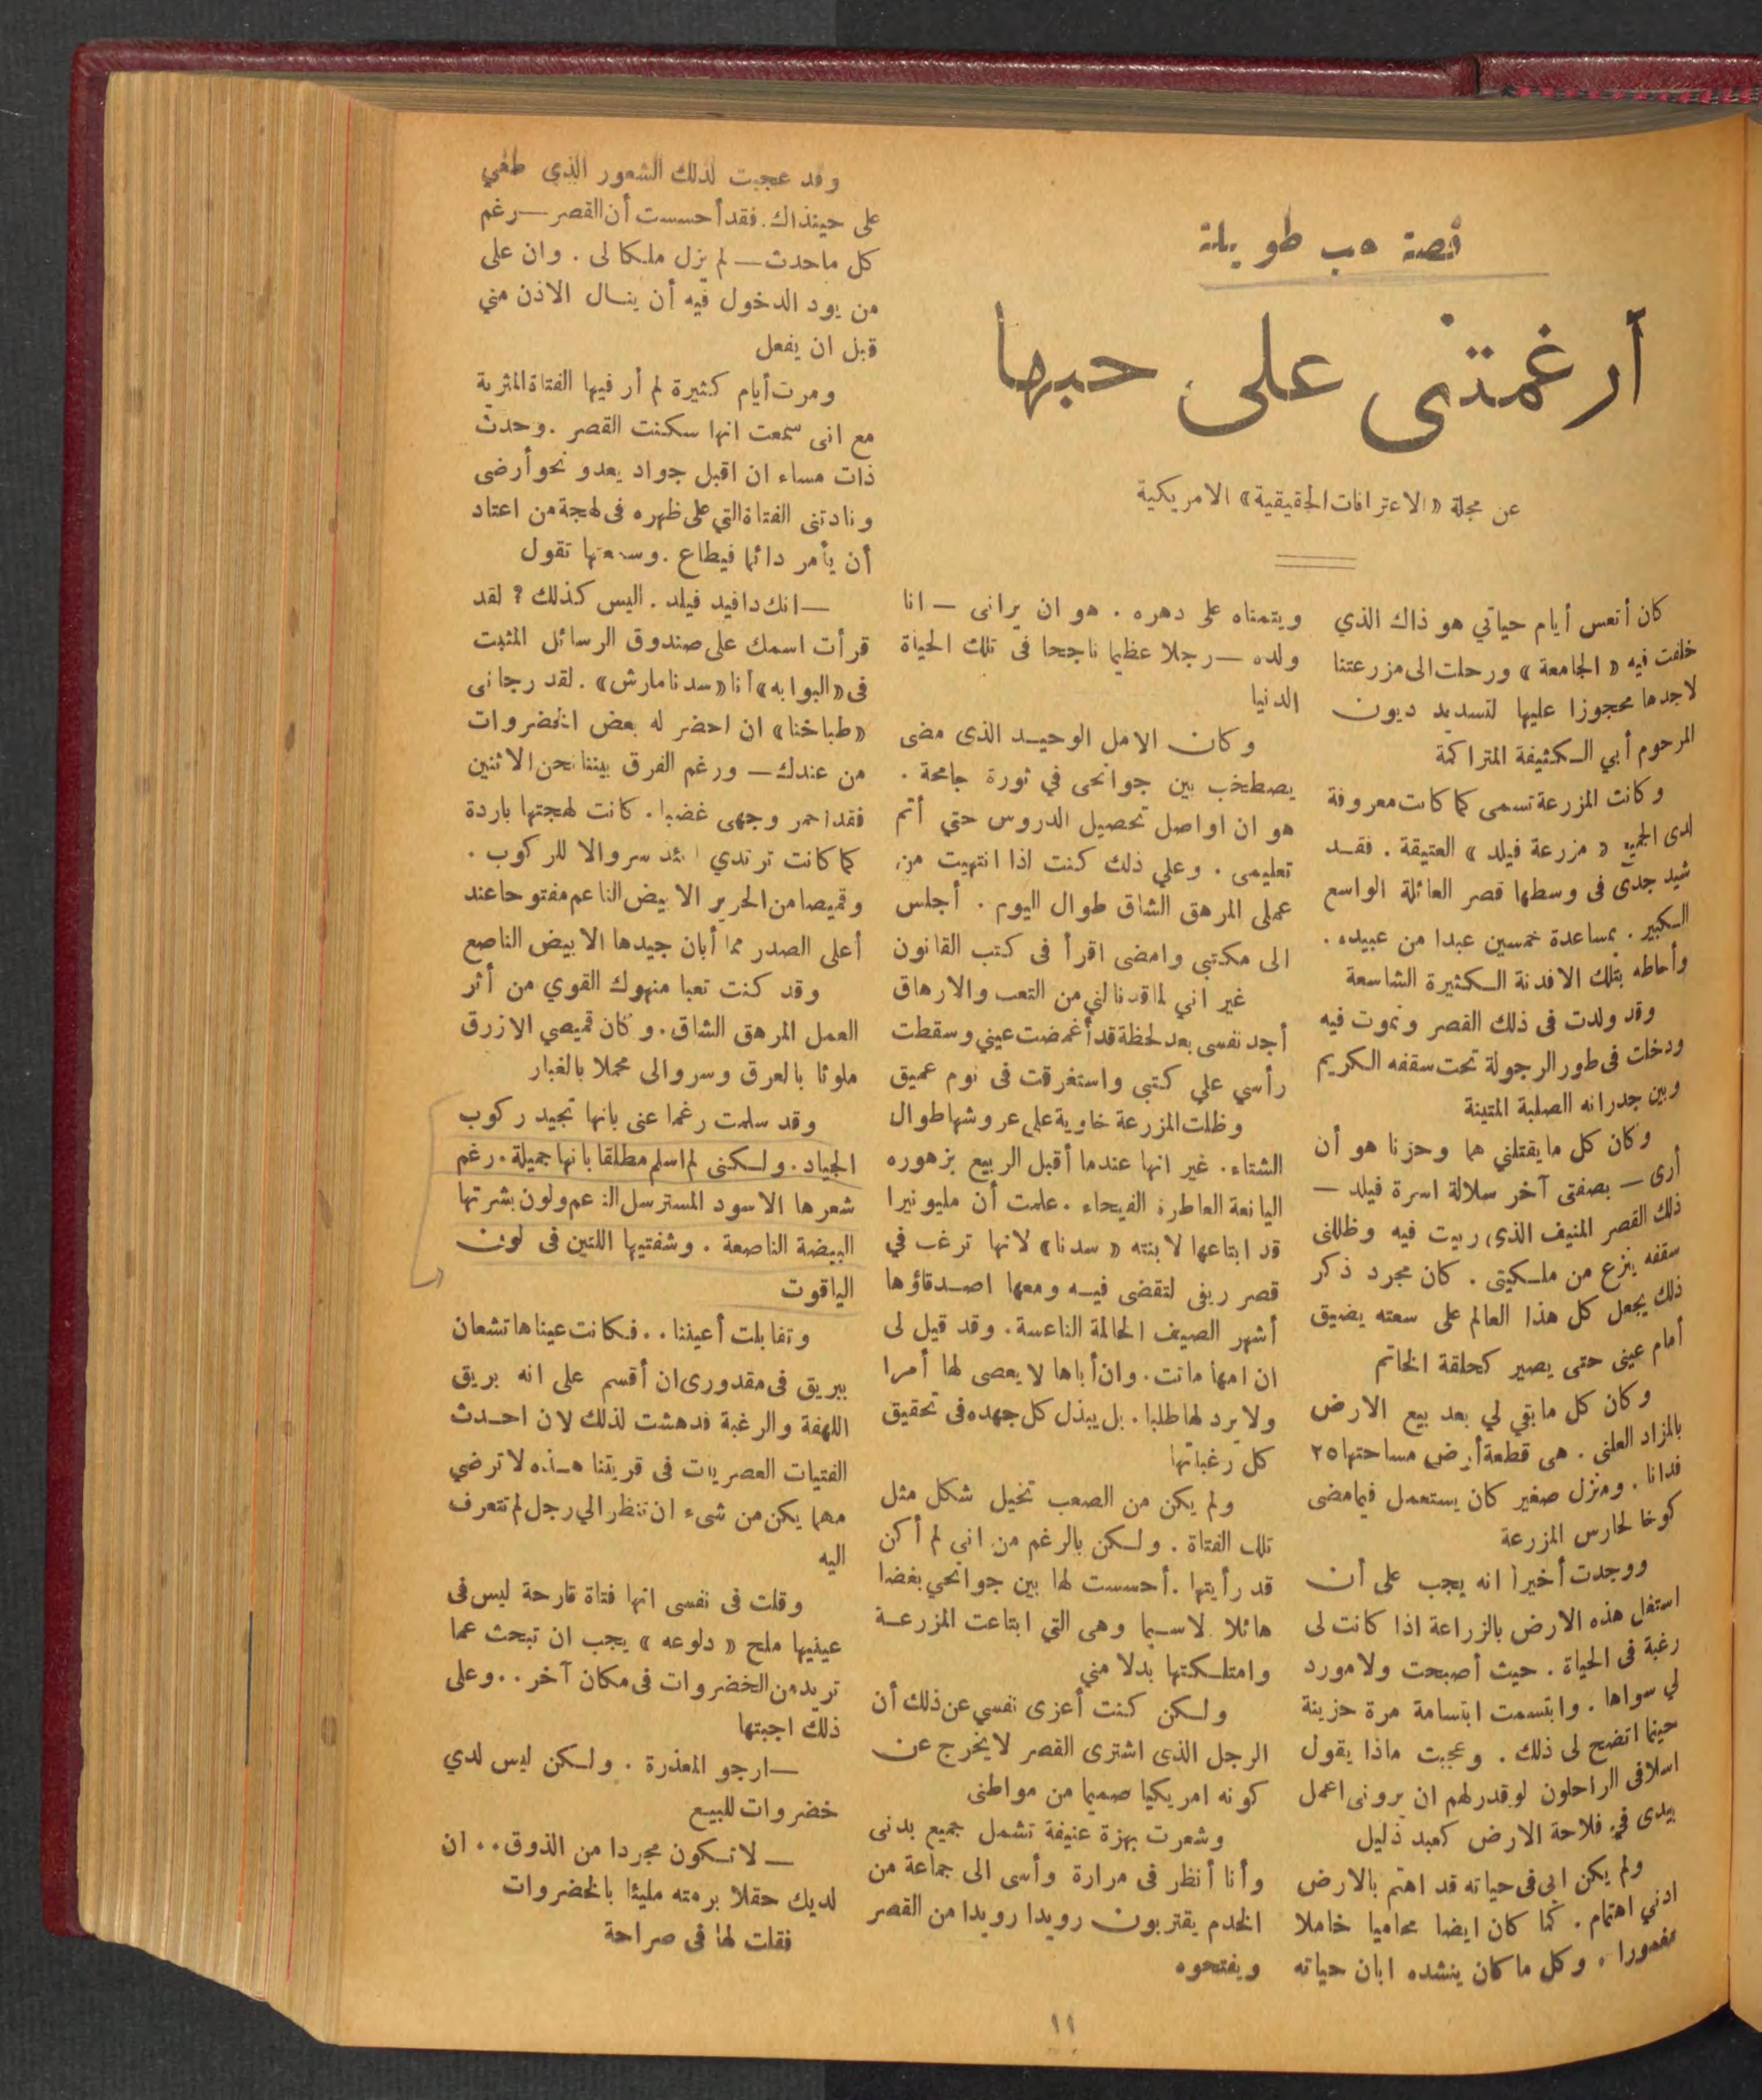 قصة حب طويلة
أرغمتني على حبها
عن مجلة «الاعترافات الحقيقية» الامريكية
كان أتعس أيام حياتي هو ذاك الذي
خلفت فيه « الجامعة » ورحلت الى مزرعتنا
لاجدها محجوزا عليها لتسديد ديون
المرحوم أبي الكثيفة المتراكمة
وكانت المزرعة تسمى كما كانت معروفة
لدى الجميع « مزرعة فيلد » العتيقة . فقد
شيد جدى فى وسطها قصر العائلة الواسع
الكبير . بمساعدة خمسين عبدا من عبيده .
وأحاطه بتلك الافدنة الكثيرة الشاسعة
وقد ولدت فى ذلك القصر ونموت فيه
ودخلت فى طور الرجولة تحت سقفه الكريم
وبين جدرانه الصلبة المتينة
وكان كل ما يقتلني هما وحزنا هو أن
أرى — بصفتى آخر سلالة اسرة فيلد —
ذلك القصر المنيف الذى ربيت فيه وظللنى
سقفه ينزع من ملكيتى . كان مجرد ذكر
ذلك يجعل كل هذا العالم على سعته يضيق
أمام عينى حتى يصير كحلقة الخاتم
وكان كل ما بقي لي بعد بيع الارض
بالمزاد العلنى . هى قطعة أرض مساحتها ٢٥
فدانا . ومنزل صغير كان يستعمل فيما مضى
كوخا لحارس المزرعة
ووجدت أخيرا انه يجب على أن
استغل هذه الارض بالزراعة اذا كانت لى
رغبة فى الحياة . حيث أصبحت ولا مورد
لي سواها . وابتسمت ابتسامة مرة حزينة
حينما اتضح لى ذلك . وعجبت ماذا يقول
اسلافى الراحلون لو قدر لهم ان يرونى اعمل
بيدى في فلاحة الارض كعبد ذليل
ولم يكن ابى فى حياته قد اهتم بالارض
ادني اهتمام . كما كان ايضا محاميا خاملا
مغمورا . وكل ما كان ينشده ابان حياته
ويتمناه على دهره . هو ان يرانى — انا
ولده — رجلا عظيما ناجحا فى تلك الحياة
الدنيا
وكان الامل الوحيد الذى مضى
يصطخب بين جوانحى في ثورة جامحة .
هو ان اواصل تحصيل الدروس حتي أتم
تعليمى . وعلي ذلك كنت اذا انتهيت من
عملى المرهق الشاق طوال اليوم . أجلس
الى مكتبي وامضى اقرأ فى كتب القانون
غير اني لما قد نالني من التعب والارهاق
أجد نفسى بعد لحظة قد أغمضت عيني وسقطت
رأسي علي كتبى واستغرقت فى نوم عميق
وظلت المزرعة خاوية على عروشها طوال
الشتاء . غير انها عندما أقبل الربيع بزهوره
اليانعة العاطرة الفيحاء . علمت أن مليونيرا
قد ابتاعها لابنته « سدنا » لانها ترغب في
قصر ريفى لتقضى فيه ومعها اصدقاؤها
أشهر الصيف الحالمة الناعسة . وقد قيل لى
ان امها ماتت . وان أباها لا يعصى لها أمرا
ولا يرد لها طلبا . بل يبذل كل جهده فى تحقيق
كل رغباتها
ولم يكن من الصعب تخيل شكل مثل
تلك الفتاة . ولكن بالرغم من انى لم أكن
قد رأيتها . أحسست لها بين جوانحي بغضا
هائلا لاسيما وهى التي ابتاعت المزرعة
وامتلكتها بدلا مني
ولكن كنت أعزى نفسي عن ذلك أن
الرجل الذى اشترى القصر لا يخرج عن
كونه امريكيا صميما من مواطنى
وشعرت بهزة عنيفة تشمل جميع بدنى
وأنا أنظر فى مرارة وأسى الى جماعة من
الخدم يقتربون رويدا رويدا من القصر
ويفتحوه
وقد عجبت لذلك الشعور الذى طغي
على حينذاك . فقد أحسست أن القصر — رغم
كل ما حدث — لم يزل ملكا لى . وان على
من يود الدخول فيه أن ينال الاذن مني
قبل ان يفعل
ومرت أيام كثيرة لم أر فيها الفتاة المثرية
مع انى سمعت انها سكنت القصر . وحدث
ذات مساء ان اقبل جواد يعدو نحو أرضى
ونادتنى الفتاة التي على ظهره فى لهجة من اعتاد
أن يأمر دائما فيطاع . وسمعتها تقول
— انك دافيد فيلد . اليس كذلك ؟ لقد
قرأت اسمك على صندوق الرسائل المثبت
فى «البوابه» أنا «سدنا مارش» . لقد رجانى
«طباخنا» ان احضر له بعض الخضروات
من عندك — ورغم الفرق بيننا نحن الاثنين
فقد احمر وجهى غضبا . كانت لهجتها باردة
كما كانت ترتدي سروالا للركوب .
وقميصا من الحرير الابيض الناعم مفتوحا عند
أعلى الصدر مما أبان جيدها الابيض الناصع
وقد كنت تعبا منهوك القوي من أثر
العمل المرهق الشاق . وكان قميصي الازرق
ملوثا بالعرق وسروالى محملا بالغبار
وقد سلمت رغما عنى بانها تجيد ركوب
الجياد . ولكنى لم اسلم مطلقا بانها جميلة . رغم
شعرها الاسود المسترسل الناعم ولون بشرتها
البيضة الناصعة . وشفتيها اللتين فى لون
الياقوت
وتقابلت أعيننا . . فكانت عيناها تشعان
ببريق فى مقدورى ان أقسم على انه بريق
اللهفة والرغبة فدهشت لذلك لان احدث
الفتيات العصريات فى قريتنا هذه لا ترضي
مهما يكن من شىء ان تنظر الي رجل لم تتعرف
اليه
وقلت فى نفسى انها فتاة قارحة ليس فى
عينيها ملح « دلوعه » يجب ان تبحث عما
تريد من الخضروات فى مكان آخر . . وعلى
ذلك اجبتها
— ارجو المعذرة . ولكن ليس لدي
خضروات للبيع
— لا تكون مجردا من الذوق . . ان
لديك حقلا برمته مليئا بالخضروات
فقلت لها فى صراحة
١١